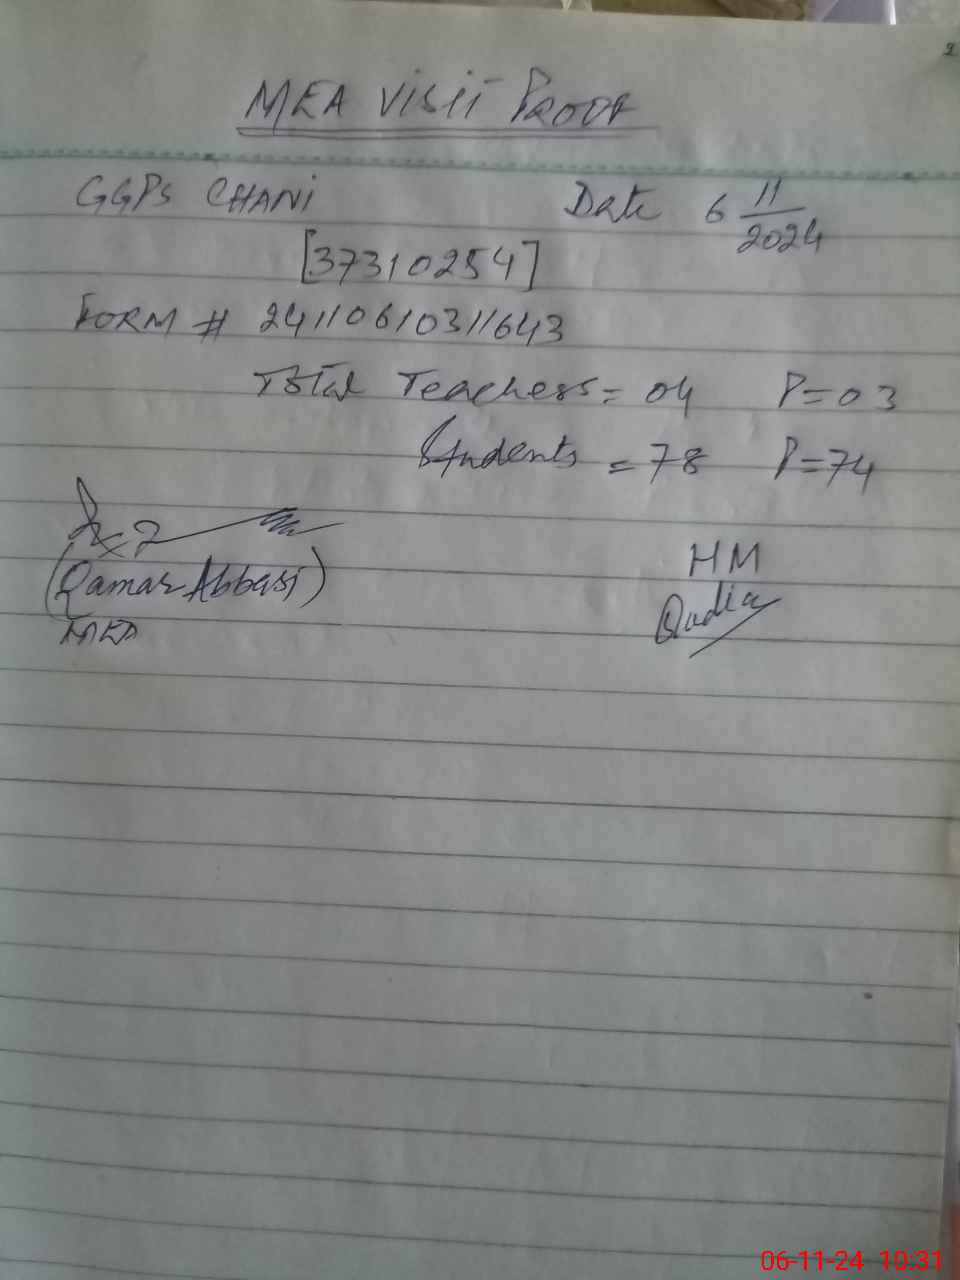 2
MEA Visit Proof
GGPS CHANI Date 6 11/2024
[37310254]
FORM # 24110610311643
Total Teachers = 04 P=03
Students = 78 P=74
(Qamar Abbasi)
MEA
HM
06-11-24 10:31